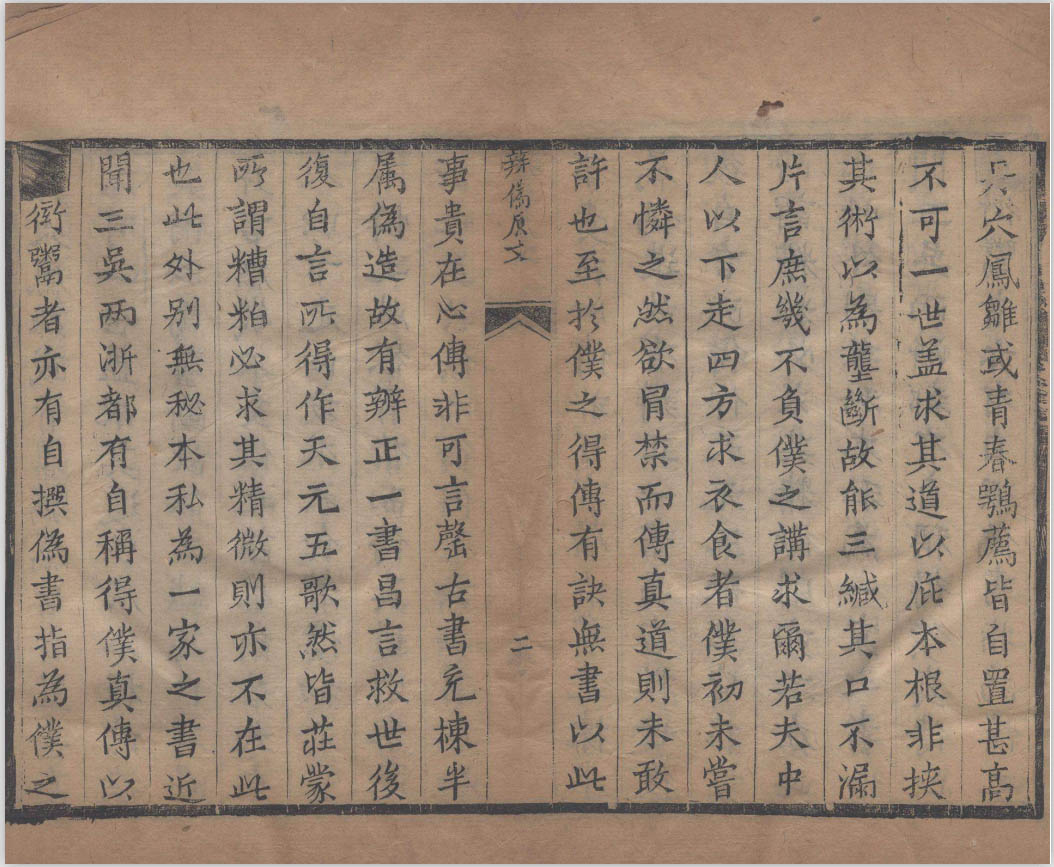 穴鳳雛或青春鶚薦皆自置甚高
不可一世盖求其道以庇本根非挟
其術以為壟斷故能三緘其口不漏
片言庶幾不負僕之講求爾若夫中
人以下走四方求衣食者僕初未嘗
不憐之然欲冒禁而傳真道則未敢
許也至於僕之得傳有訣無書以此
辨偽原文
二
事貴在心傳非可言罄古書充棟半
属偽造故有辨正一書昌言救世後
復自言所得作天元五歌然皆莊蒙
所謂糟粕必求其精微則亦不在此
也此外别無秘本私為一家之書近
聞三吳两浙都有自稱得僕真傳以
衒鬻者亦有自撰偽書指為僕之